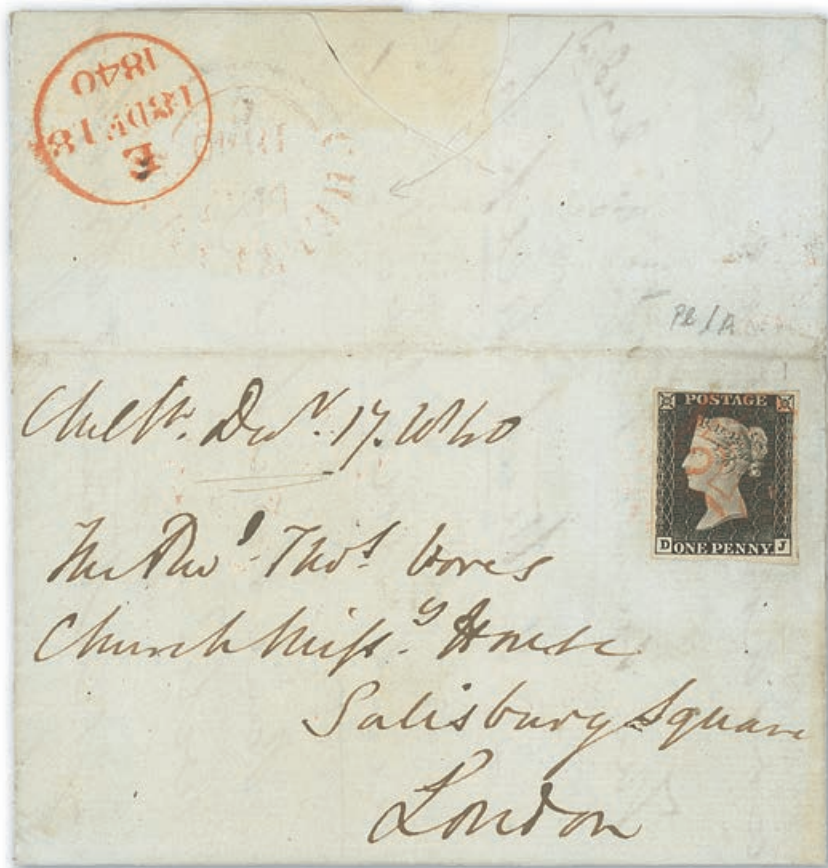 E
18 DE 18
1840
CHES
Pl 1A
POSTAGE
D ONE PENNY J
17. 1840
The Revd. Thos. Vores
Church Missy. House
Salisbury Square
London